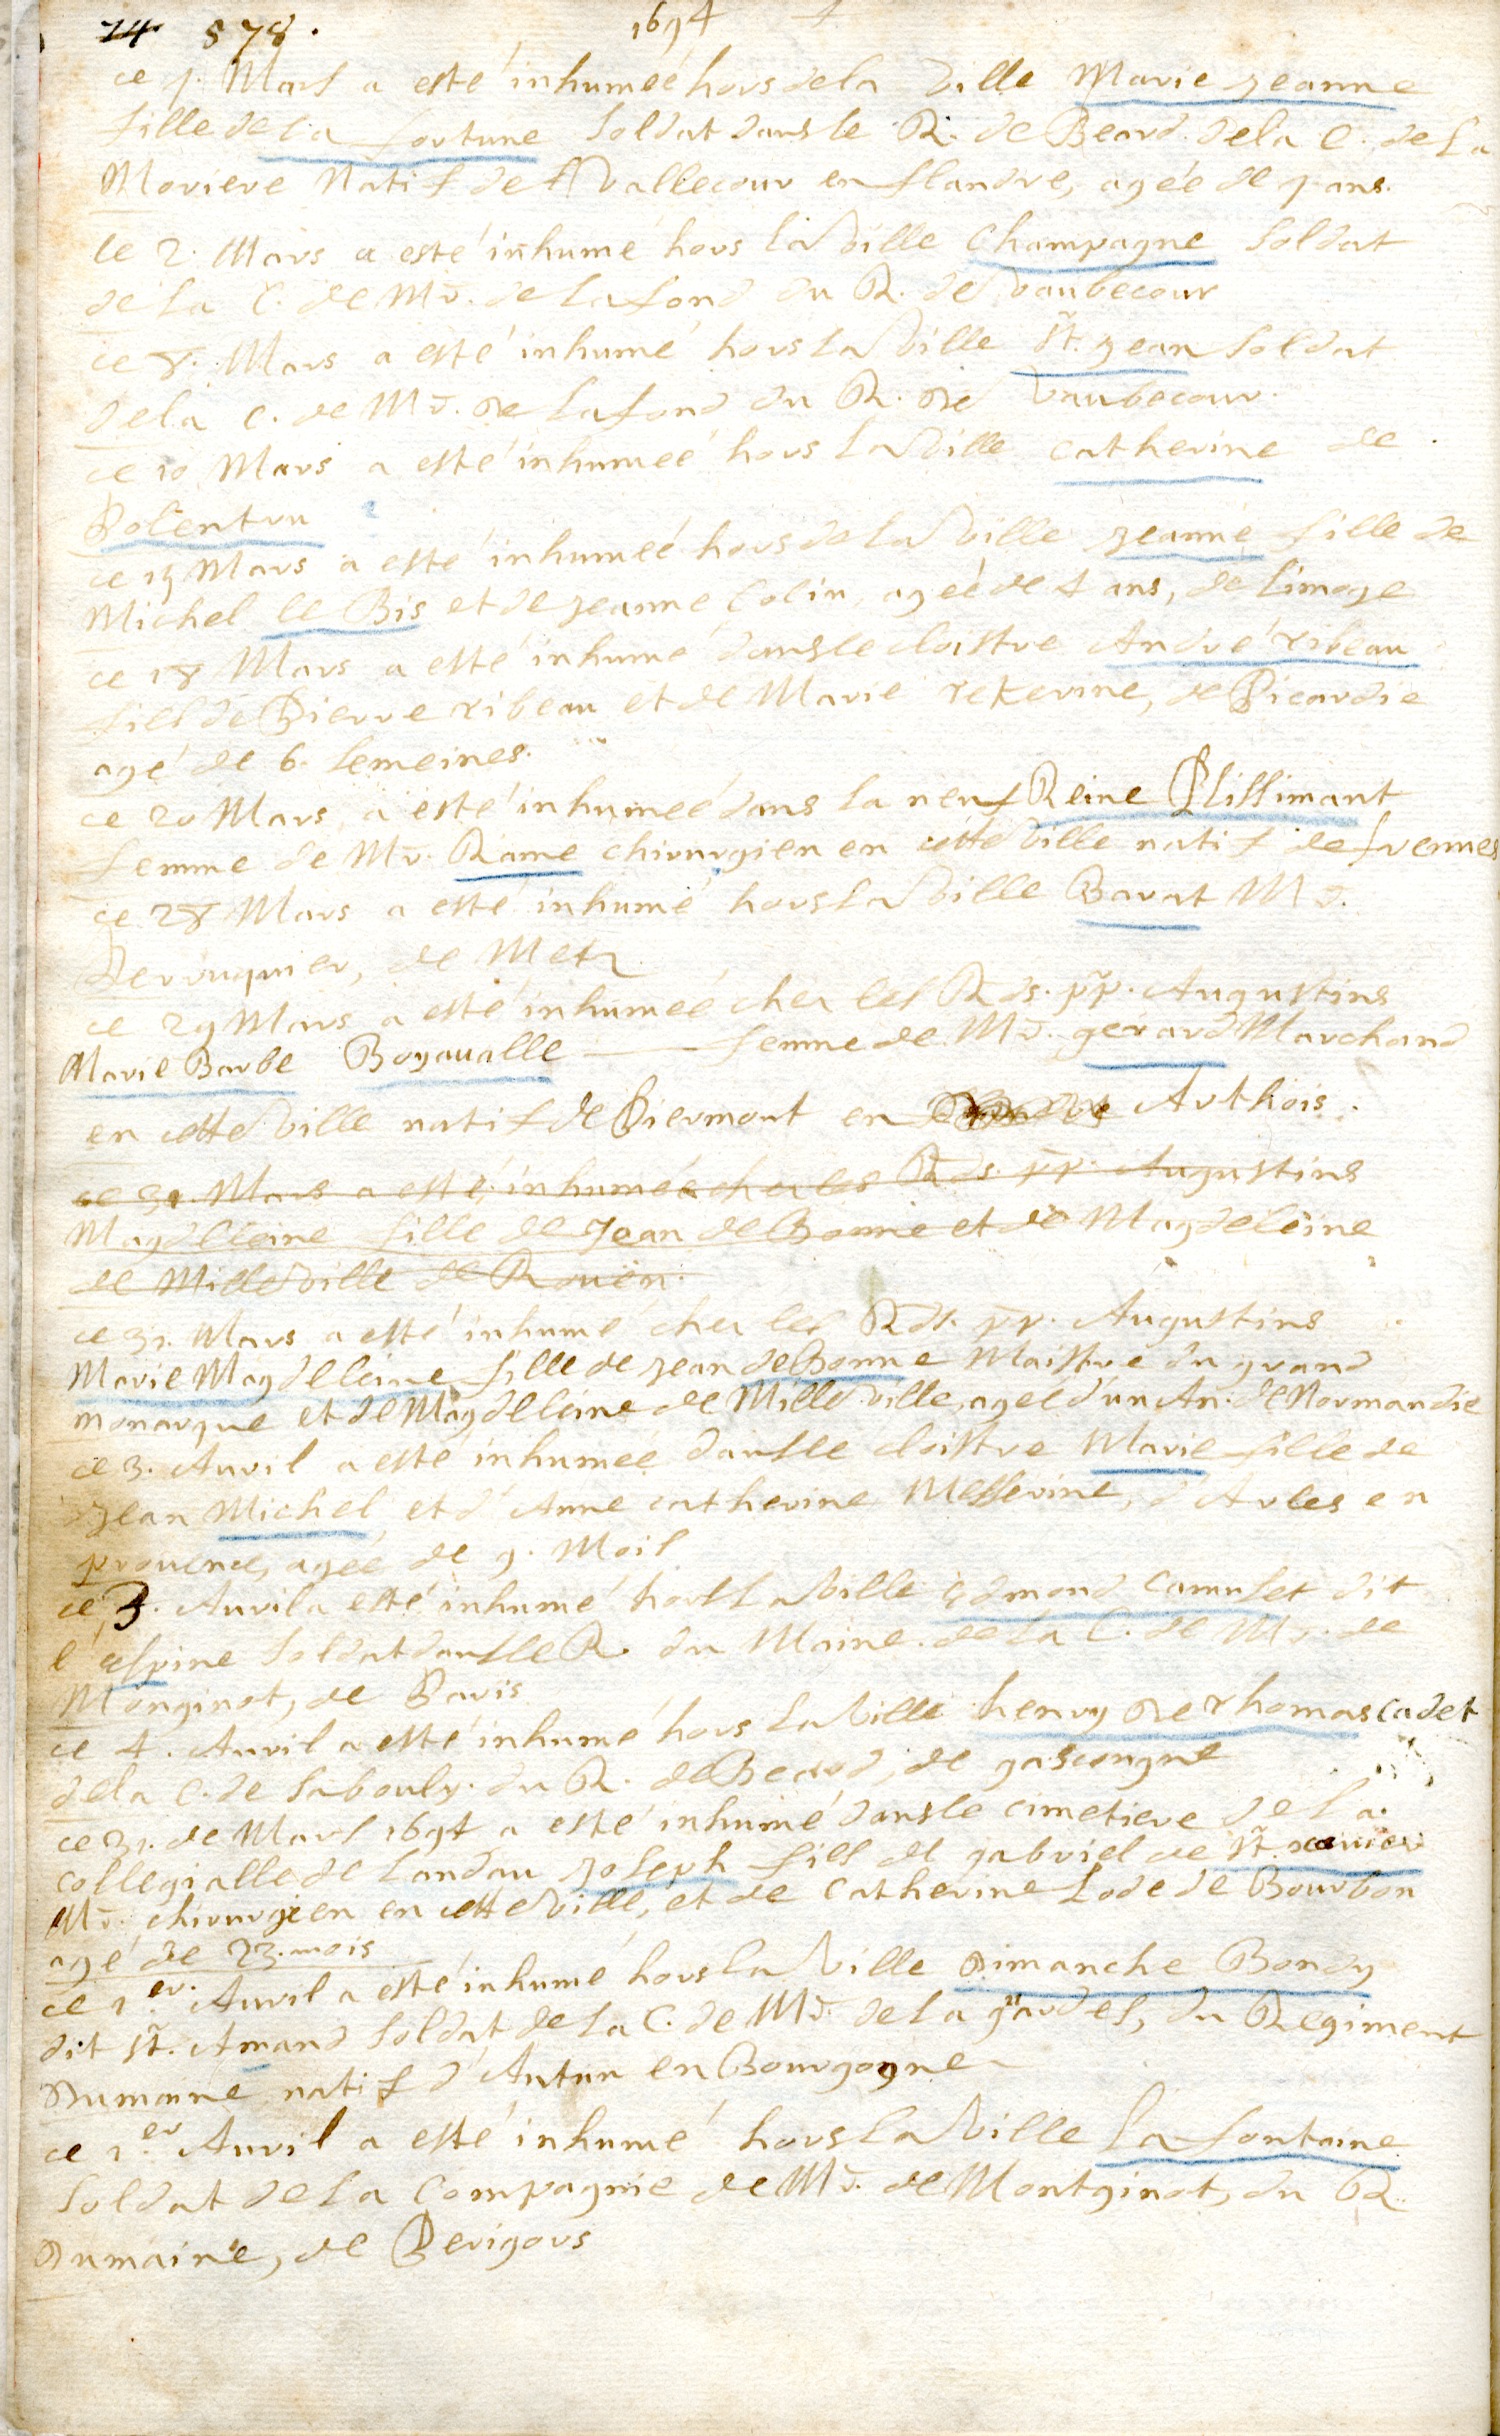 74 578. 1694
ce 1. Mars a esté inhumeé hors dela Ville Marie Jeanne
fille de la fortune Soldat dans le R. de Beard. dela C. de La
Moriere Natif de Vallecour en flandre, ageé de 7 ans.
le 2. Mars a esté inhumé hors la Ville Champagne Soldat
de La C. de Mr. de Lafond du R. de Vaubecour
ce 8. Mars a esté inhumé hors La Ville St. Jean Soldat
dela C. de Mr. de Lafond du R. de Vaubecour.
ce 10 Mars a esté inhumeé hors La Ville Catherine de
Bolentru
ce 15 Mars a esté inhumeé hors de La Ville Jeanne fille de
Michel le Bis et de Jeanne Colin, ageé de 4 ans, de Limoge
ce 18 Mars a esté inhumé dans le cloistre André ribeau
fils de Pierre ribeau et de Marie rekerine, de Picardie
agé de 6. semeines.
ce 20 Mars a esté inhumeé dans la nenf Reine Plissimant
femme de Mr. Rame chirurgien en cette Ville natif de frennes
ce 28 Mars a esté inhumé hors La Ville Barat Mr.
Perruquier, de Metz
ce 29 Mars a esté inhumeé chez les Rds. pp. Augustins
Marie Barbe Boyaualle femme de Mr. gerard Marchand
en cette Ville natif de Piermont en Arthois.
ce 31. Mars a esté inhumeé chez les Rds. pp. Augustins
Magdelleine fille de Jean de Bonne et de Magdeleine
de Mille Ville de Rouen.
ce 31. Mars a esté inhumé chez les Rds. pp. Augustins
Marie Magdelleine fille de Jean de Bonne Maistre du grand
monarque et de Magdeleine de Mille Ville, ageé d'un An. de Normandie
ce 3. Auril a esté inhumeé dans le cloistre Marie fille de
Jean Michel, et d'Anne catherine Messerine, d'Arles en
prouence, ageé de 9. Mois
ce 3. Auril a esté inhumé hors La Ville Edmond Camuset dit
l'espine Soldat dans le R. du Maine. de La C. de Mr. de
Monginot, de Paris
ce 4. Auril a esté inhumé hors La Ville henry De Thomas cadet
dela C. de Labouly. du R. de Beard, de gascongne
ce 31. de Mars 1694 a esté inhumé dans le cimetiere de La
collegialle de Landau Joseph fils de gabriel de St.
Mr. chirurgien en cette Ville, et de Catherine Lode de Bourbon
agé de 23. mois
ce 1er. Auril a esté inhumé hors La Ville Dimanche Bondy
dit St. Amand Soldat de La C. de Mr. de La gardes, du Regiment
Dumaine natif d'Autun en Bourgogne
ce 1er Auril a esté inhumé hors La Ville La fontaine
Soldat de La Compagnie de Mr. de Montginot, du R
Dumaine, de Perigors